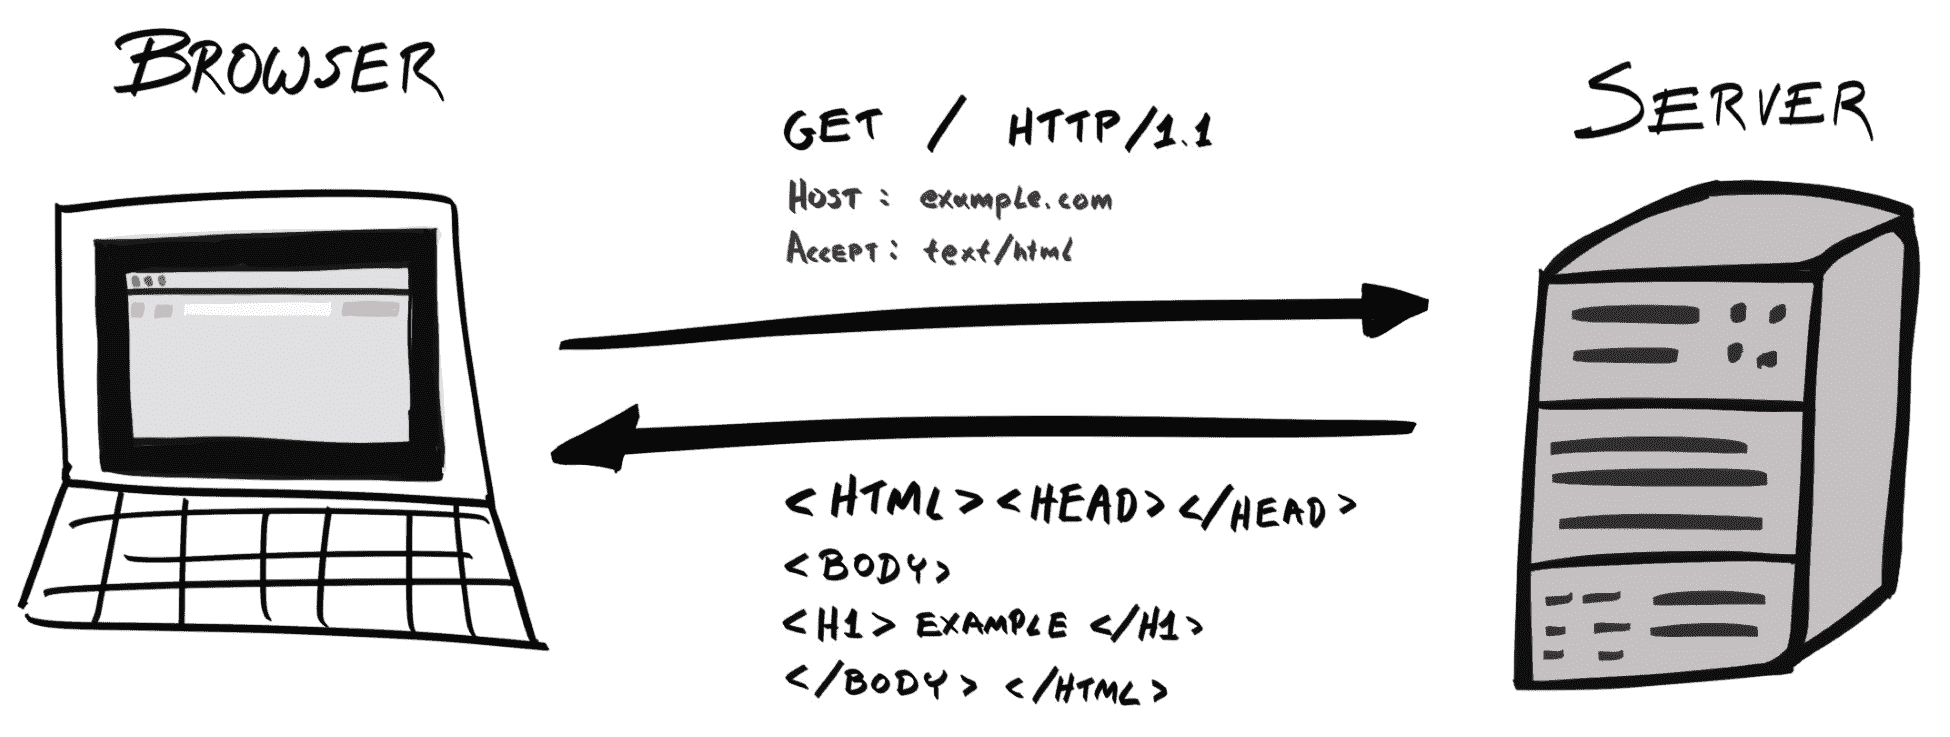 BROWSER
SERVER
GET / HTTP/1.1
HOST : example.com
ACCEPT : text/html
<HTML><HEAD></HEAD>
<BODY>
<H1> EXAMPLE </H1>
</BODY> </HTML>